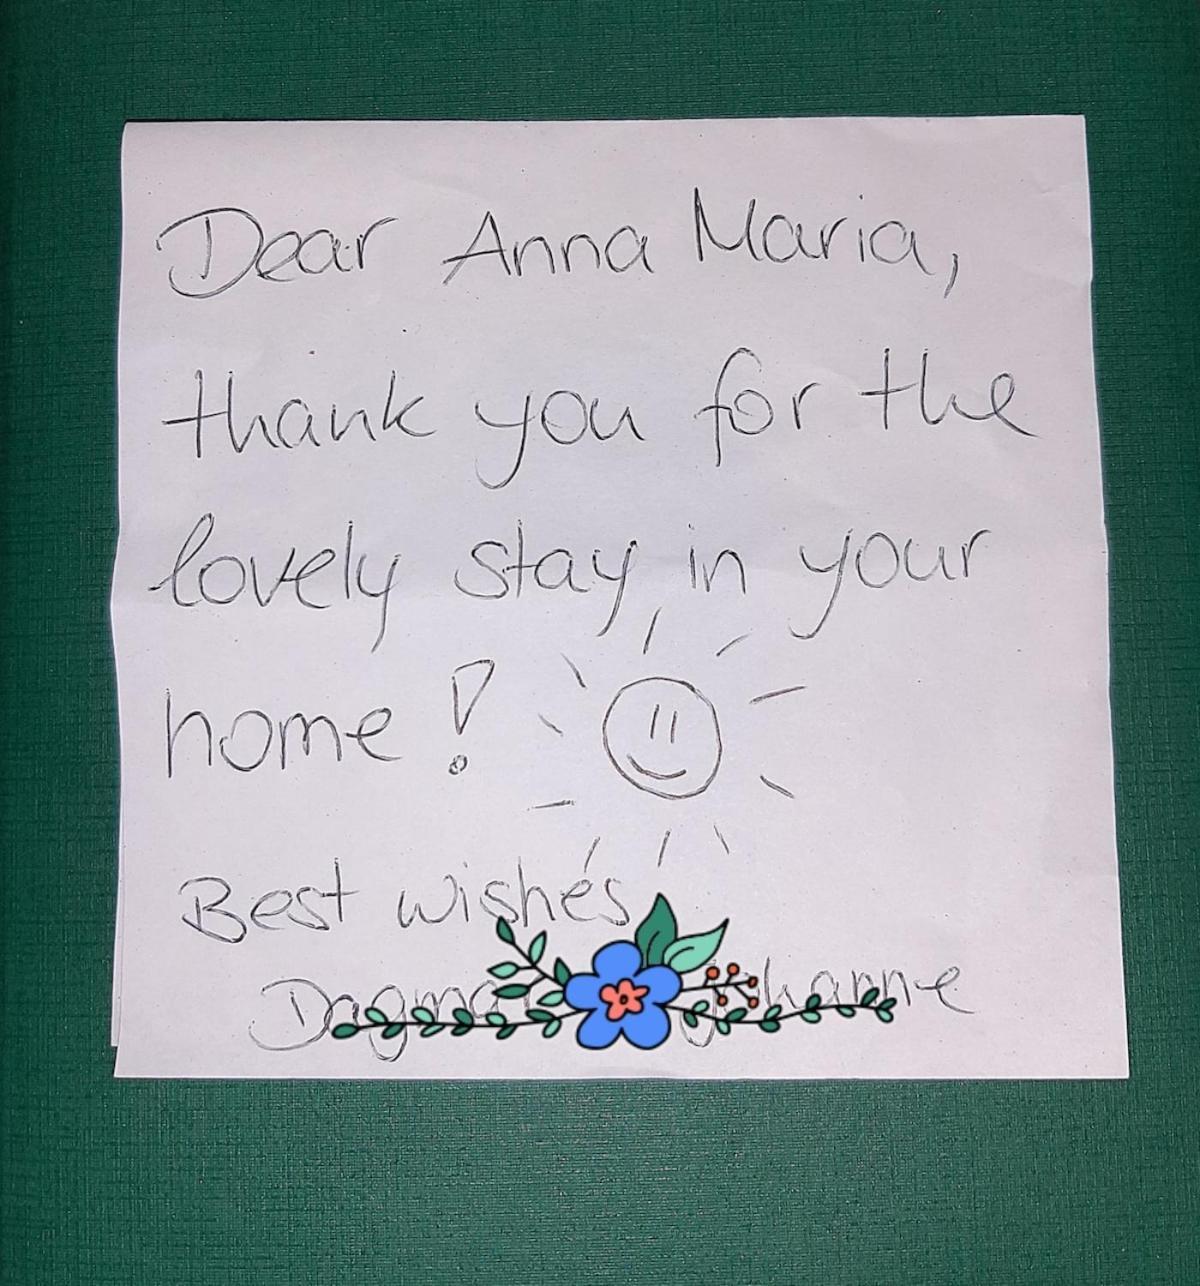 Dear Anna Maria,
thank you for the
lovely stay in your
home!
Best wishes
Dagmar